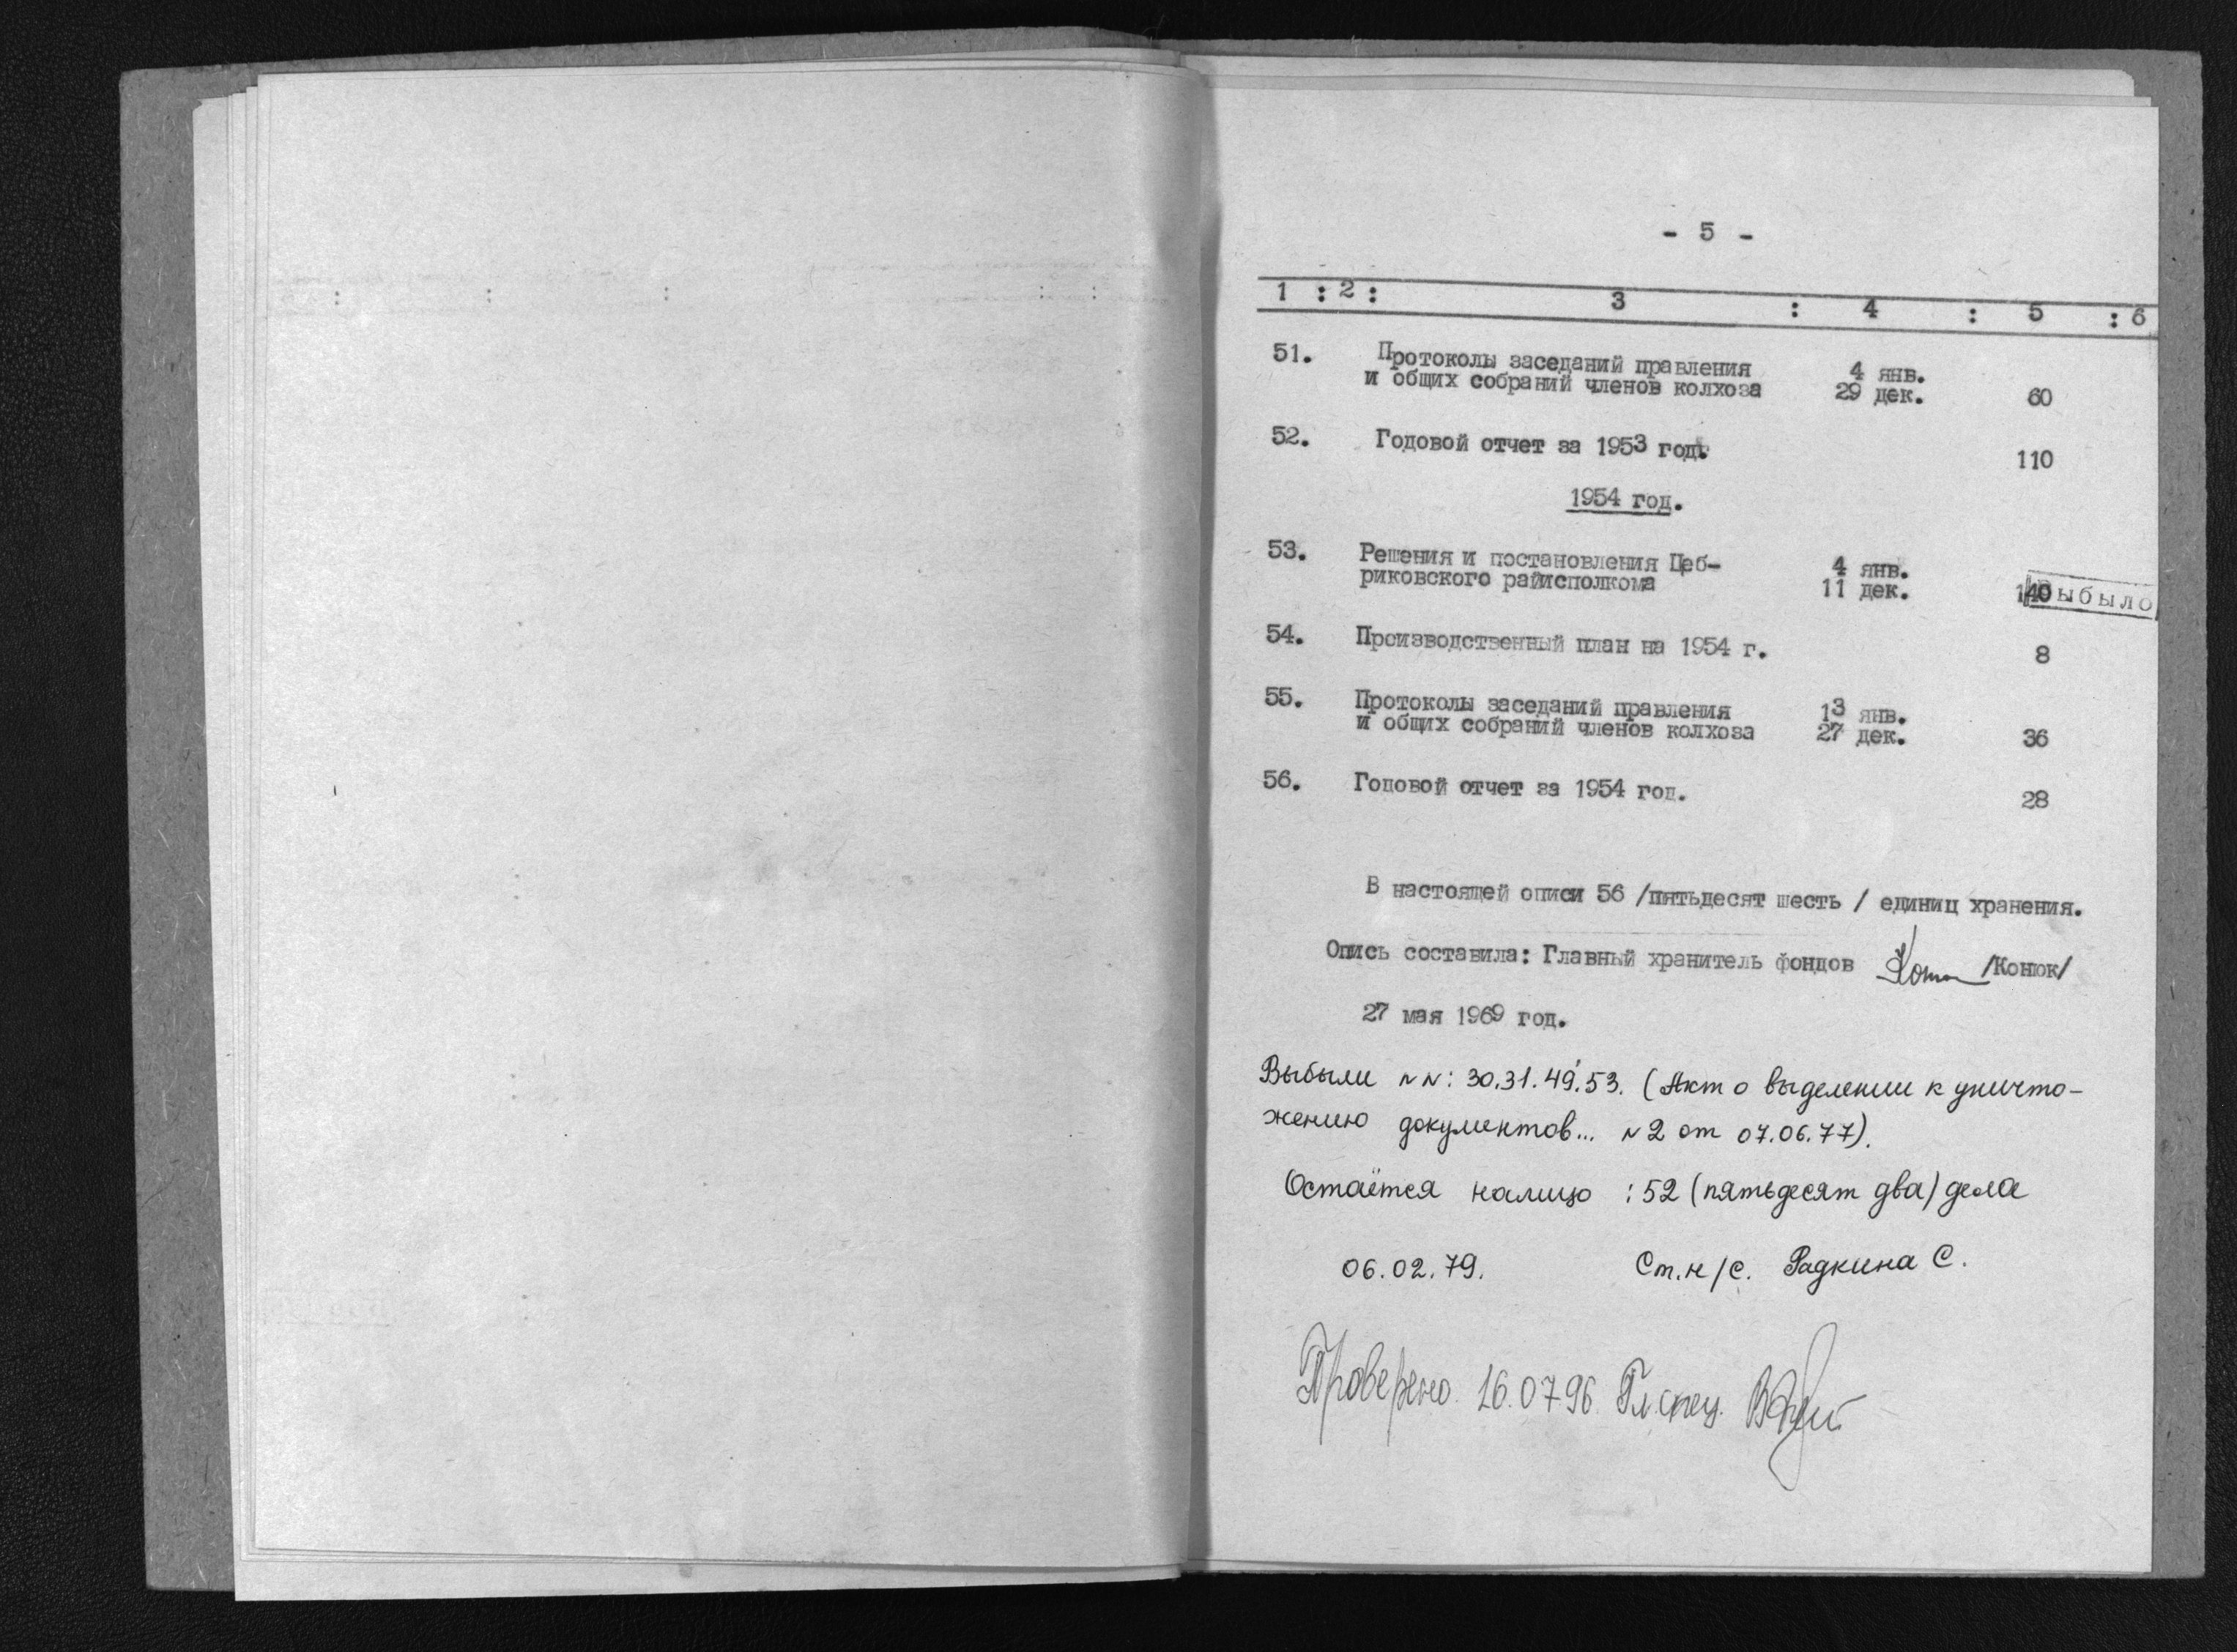 - 5 -
1 : 2 : 3 : 4 : 5 : 6
51. Протоколы заседаний правления 4 янв.
и общих собраний членов колхоза 29 дек. 60
52. Годовой отчет за 1953 год. 110
1954 год.
53. Решения и постановления Цеб- 4 янв.
риковского райисполкома 11 дек. 140 Выбыло
54. Производственный план на 1954 г. 8
55. Протоколы заседаний правления 13 янв.
и общих собраний членов колхоза 27 дек. 36
56. Годовой отчет за 1954 год. 28
В настоящей описи 56 /пятьдесят шесть / единиц хранения.
Опись составила: Главный хранитель фондов /Конюк/
27 мая 1969 год.
Выбыли NN: 30.31.49.53. (Акт о выделении к уничто-
жению документов... N2 от 07.06.77).
Остаётся налицо : 52 (пятьдесят два) дела
06.02.79. Ст.н/с. Радкина С.
Проверено. 16.07.96. Гл.спец.